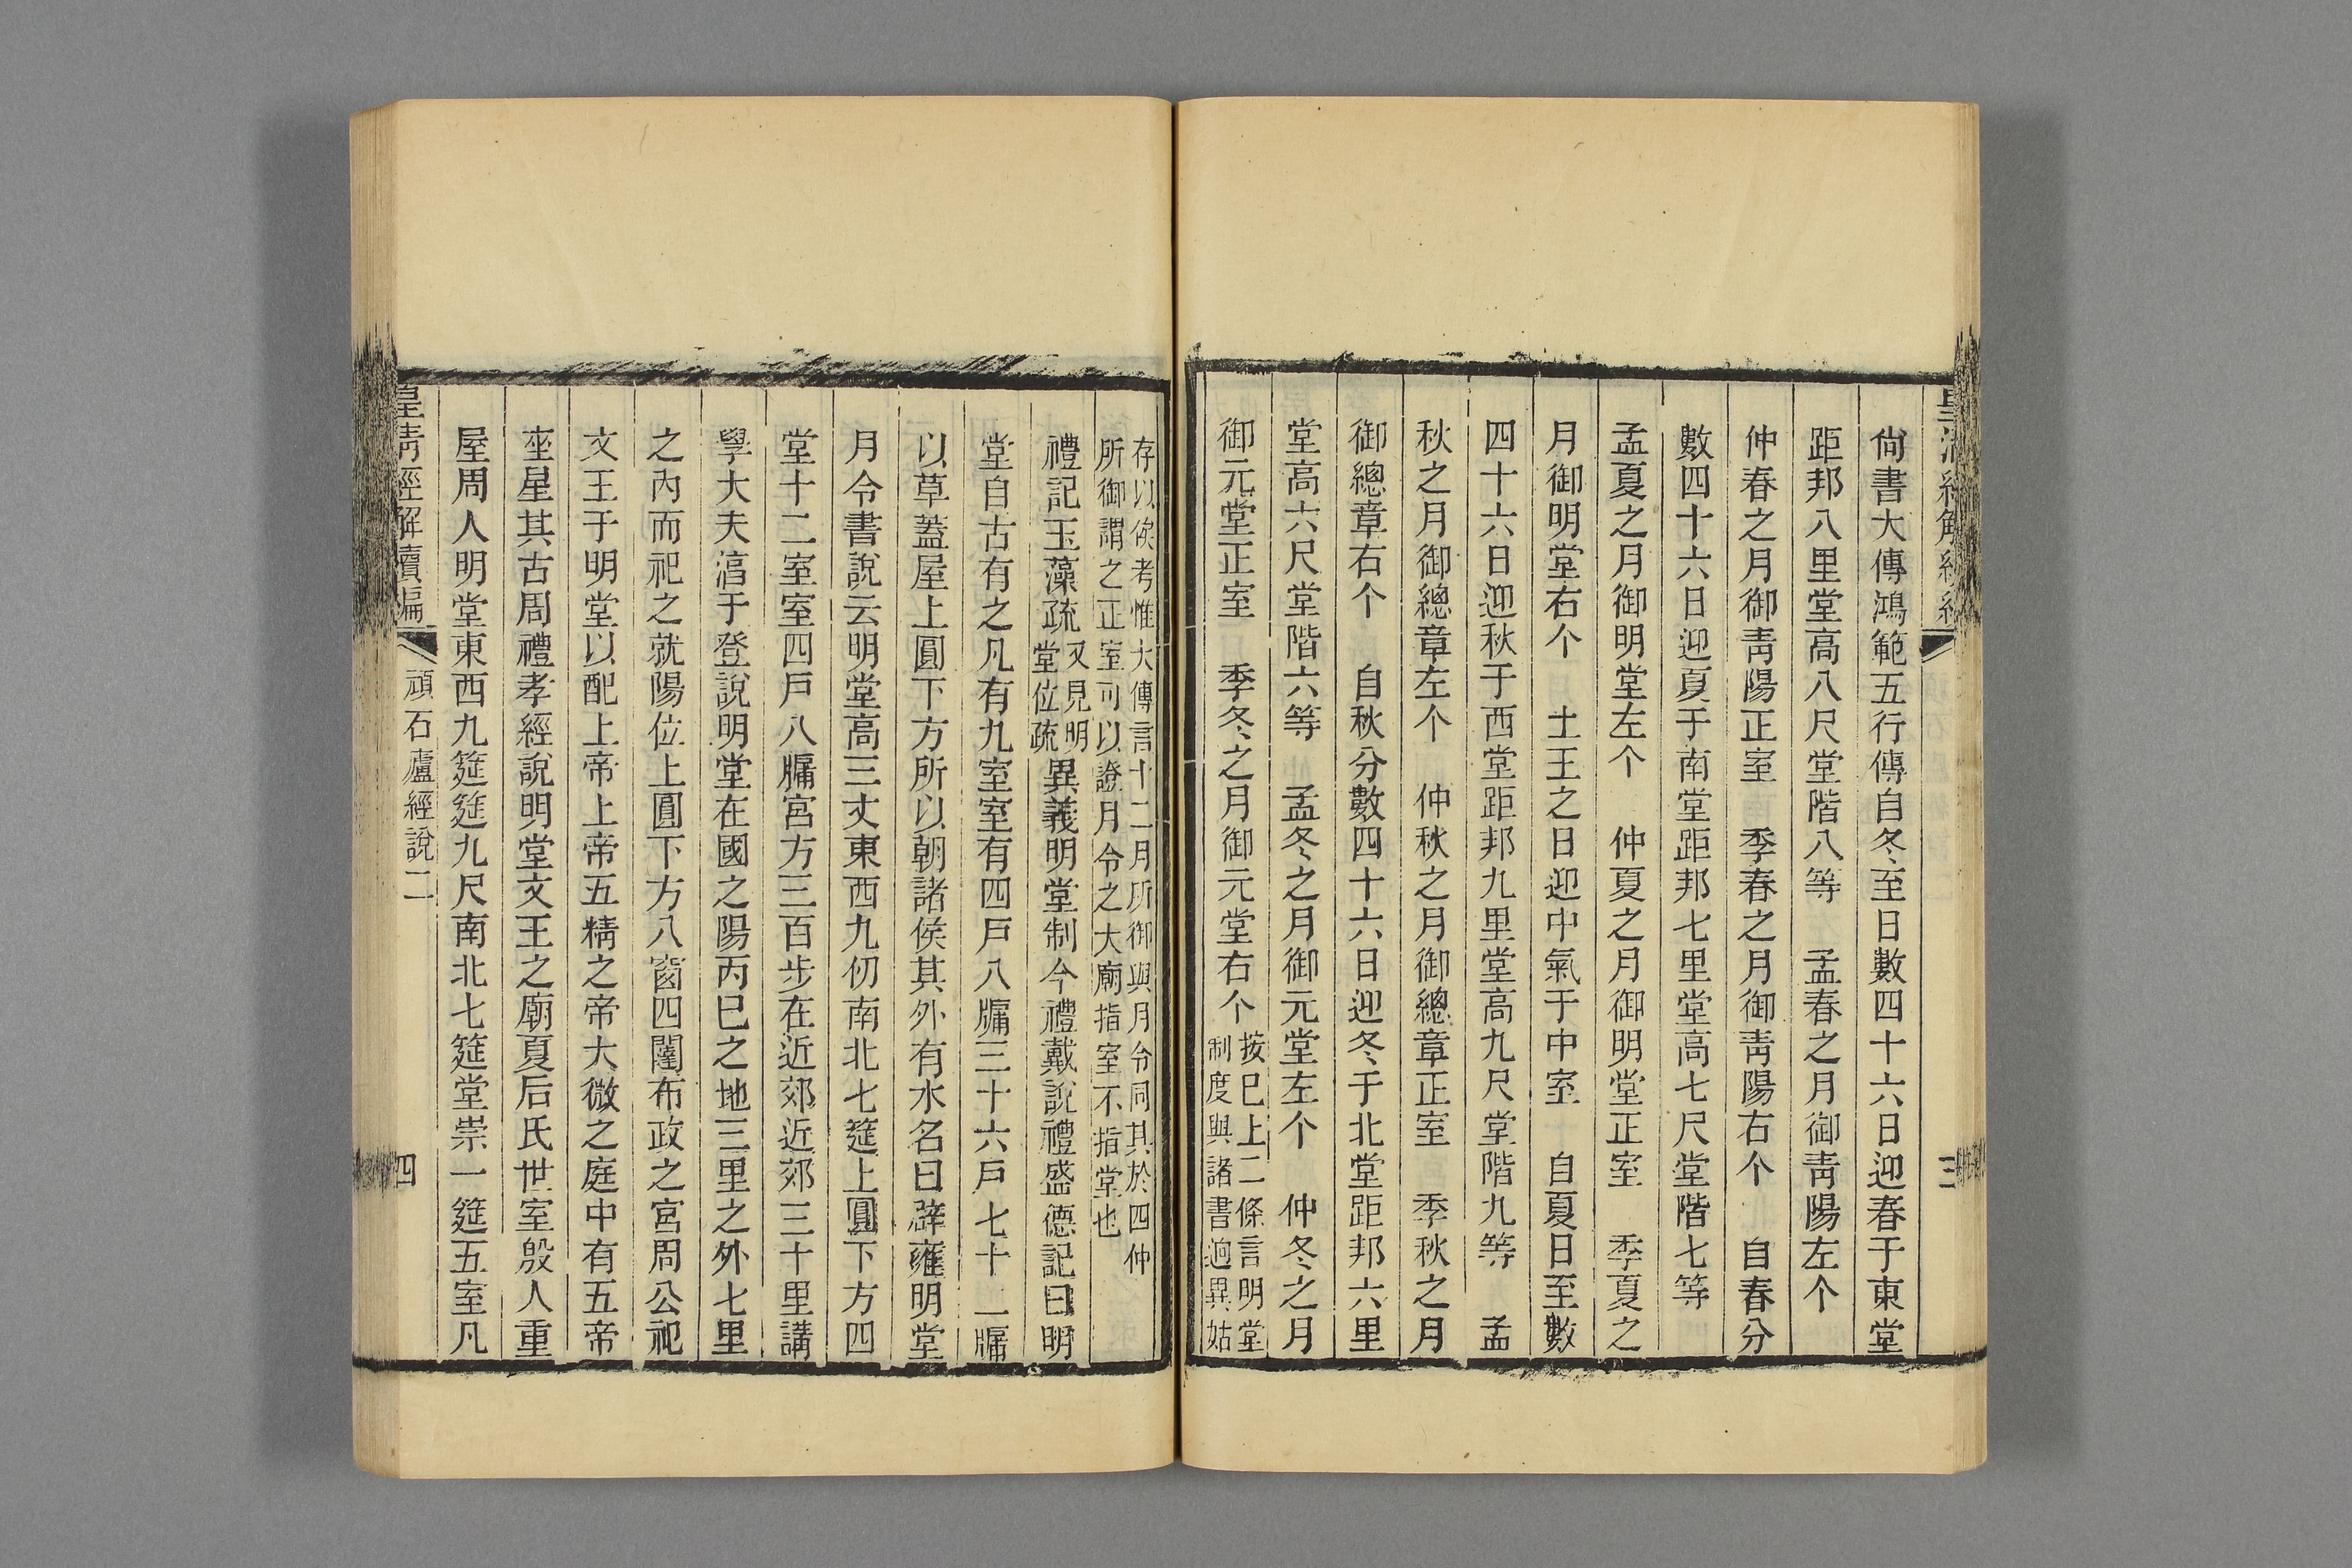 尙書大傳鴻範五行傳自冬至日數四十六日迎春于東堂
距邦八里堂高八尺堂階八等　孟春之月御靑陽左个
仲春之月御靑陽正室　季春之月御靑陽右个　自春分
數四十六日迎夏于南堂距邦七里堂高七尺堂階七等
孟夏之月御明堂左个　仲夏之月御明堂正室　季夏之
月御明堂右个　土王之日迎中氣于中室　自夏日至數
四十六日迎秋于西堂距邦九里堂高九尺堂階九等　孟
秋之月御總章左个　仲秋之月御總章正室　季秋之月
御總章右个　自秋分數四十六日迎冬于北堂距邦六里
堂高六尺堂階六等　孟冬之月御元堂左个　仲冬之月
御元堂正室　季冬之月御元堂右个
按巳上二條言明堂
制度與諸書迥異姑
存以俟考惟大傳言十二月所御與月令同其於四仲
所御謂之正室可以證月令之大廟指室不指堂也
禮記玉藻疏
又見明
堂位疏
異義明堂制今禮戴說禮盛德記曰明
堂自古有之凡有九室室有四戶八牖三十六戶七十二牖
以草蓋屋上圓下方所以朝諸侯其外有水名曰辟雍明堂
月令書說云明堂高三丈東西九仞南北七筵上圓下方四
堂十二室室四戶八牖宮方三百步在近郊近郊三十里講
學大夫淳于登說明堂在國之陽丙巳之地三里之外七里
之內而祀之就陽位上圓下方八窗四闥布政之宮周公祀
文王于明堂以配上帝上帝五精之帝大微之庭中有五帝
座星其古周禮孝經說明堂文王之廟夏后氏世室殷人重
屋周人明堂東西九筵筵九尺南北七筵堂崇一筵五室凡
皇淸經解續編
頑石廬經說二
四